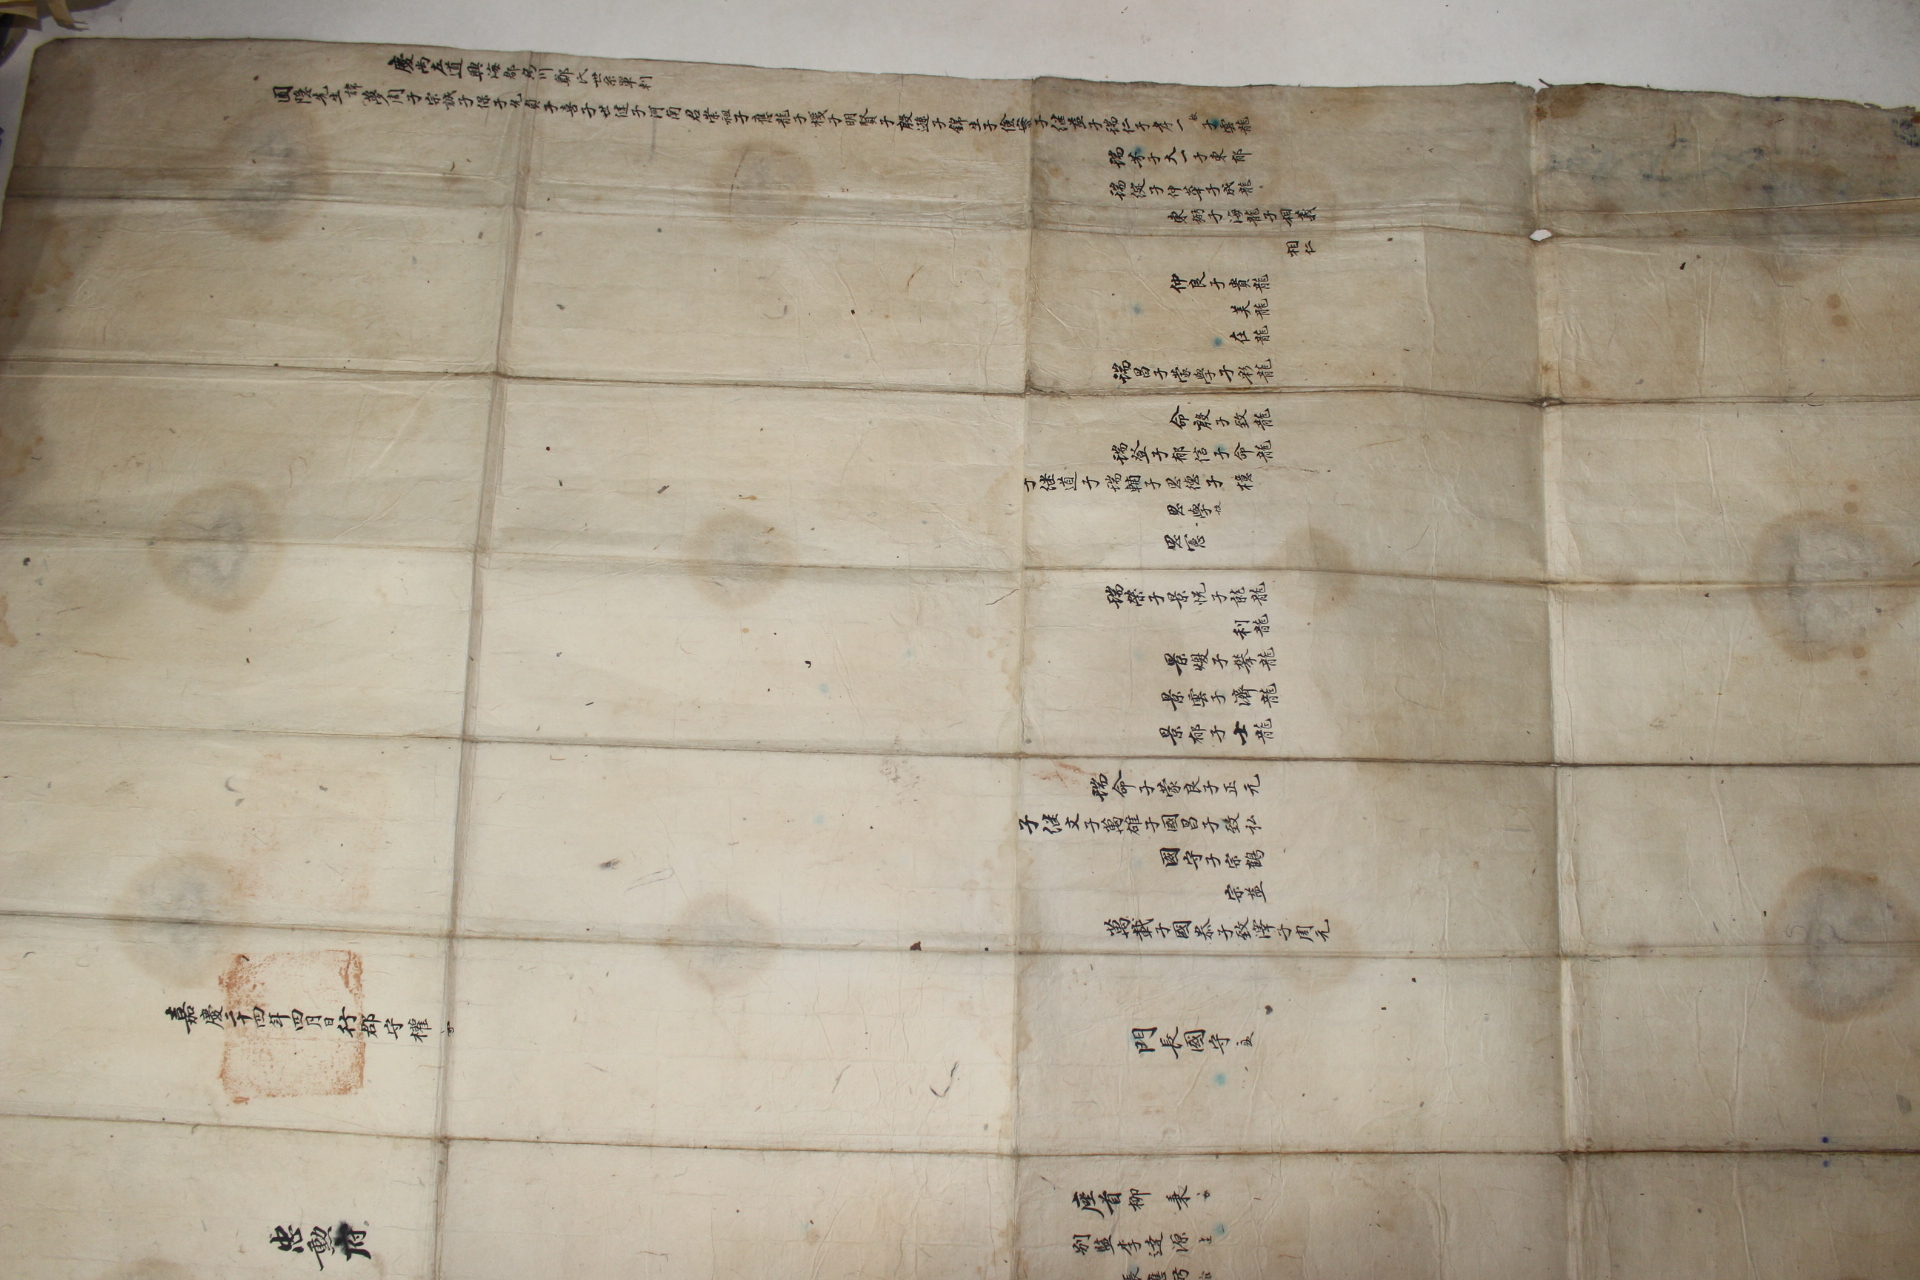 慶尚左道興海郡烏川鄭氏世系單刺
圃隱先生諱夢周子宗誠子保子允貞子喜子世健子河南君崇祖子應龍子機子明賢子殷遜子錦生子儉 子継益子瑞仁子孝一 子雲龍
瑞 子大一子東郁
瑞綻子仲華子成龍
東弼子海龍子相義
相仁
仲良子貴龍
美龍
在龍
瑞昌子蒙學子彩龍
命殷子致龍
瑞登子郁信子命龍
子継道子瑞輔子思德子檍
思學
思憲
瑞榮子景悅子龍龍
利龍
景煖子攀龍
景雲子濟龍
景郁子士龍
瑞命子蒙良子正元
子継文子萬雄子國昌子致弘
國守子宗鶴
宗益
萬載子國恭子致澤子周元
門長國守
嘉慶二十四年四月日行郡守權
座首柳 秉
別監李達源
張應
忠勳府